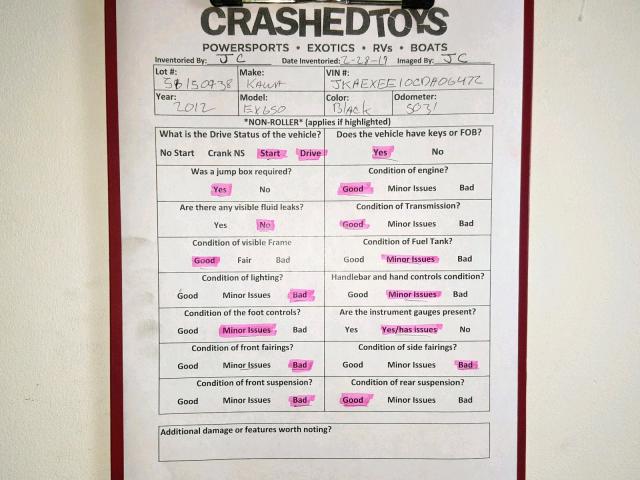 CRASHEDTOYS
POWERSPORTS • EXOTICS • RVs • BOATS
Inventoried By: JC Date Inventoried: 2-28-19 Imaged By: JC
Lot #: Make: VIN #:
58150438 KAWA JKAEXEE10CDA06472
Year: Model: Color: Odometer:
2012 EX650 Black 5031
*NON-ROLLER* (applies if highlighted)
What is the Drive Status of the vehicle? Does the vehicle have keys or FOB?
No Start Crank NS Start Drive Yes No
Was a jump box required? Condition of engine?
Yes No Good Minor Issues Bad
Are there any visible fluid leaks? Condition of Transmission?
Yes No Good Minor Issues Bad
Condition of visible Frame Condition of Fuel Tank?
Good Fair Bad Good Minor Issues Bad
Condition of lighting? Handlebar and hand controls condition?
Good Minor Issues Bad Good Minor Issues Bad
Condition of the foot controls? Are the instrument gauges present?
Good Minor Issues Bad Yes Yes/has issues No
Condition of front fairings? Condition of side fairings?
Good Minor Issues Bad Good Minor Issues Bad
Condition of front suspension? Condition of rear suspension?
Good Minor Issues Bad Good Minor Issues Bad
Additional damage or features worth noting?